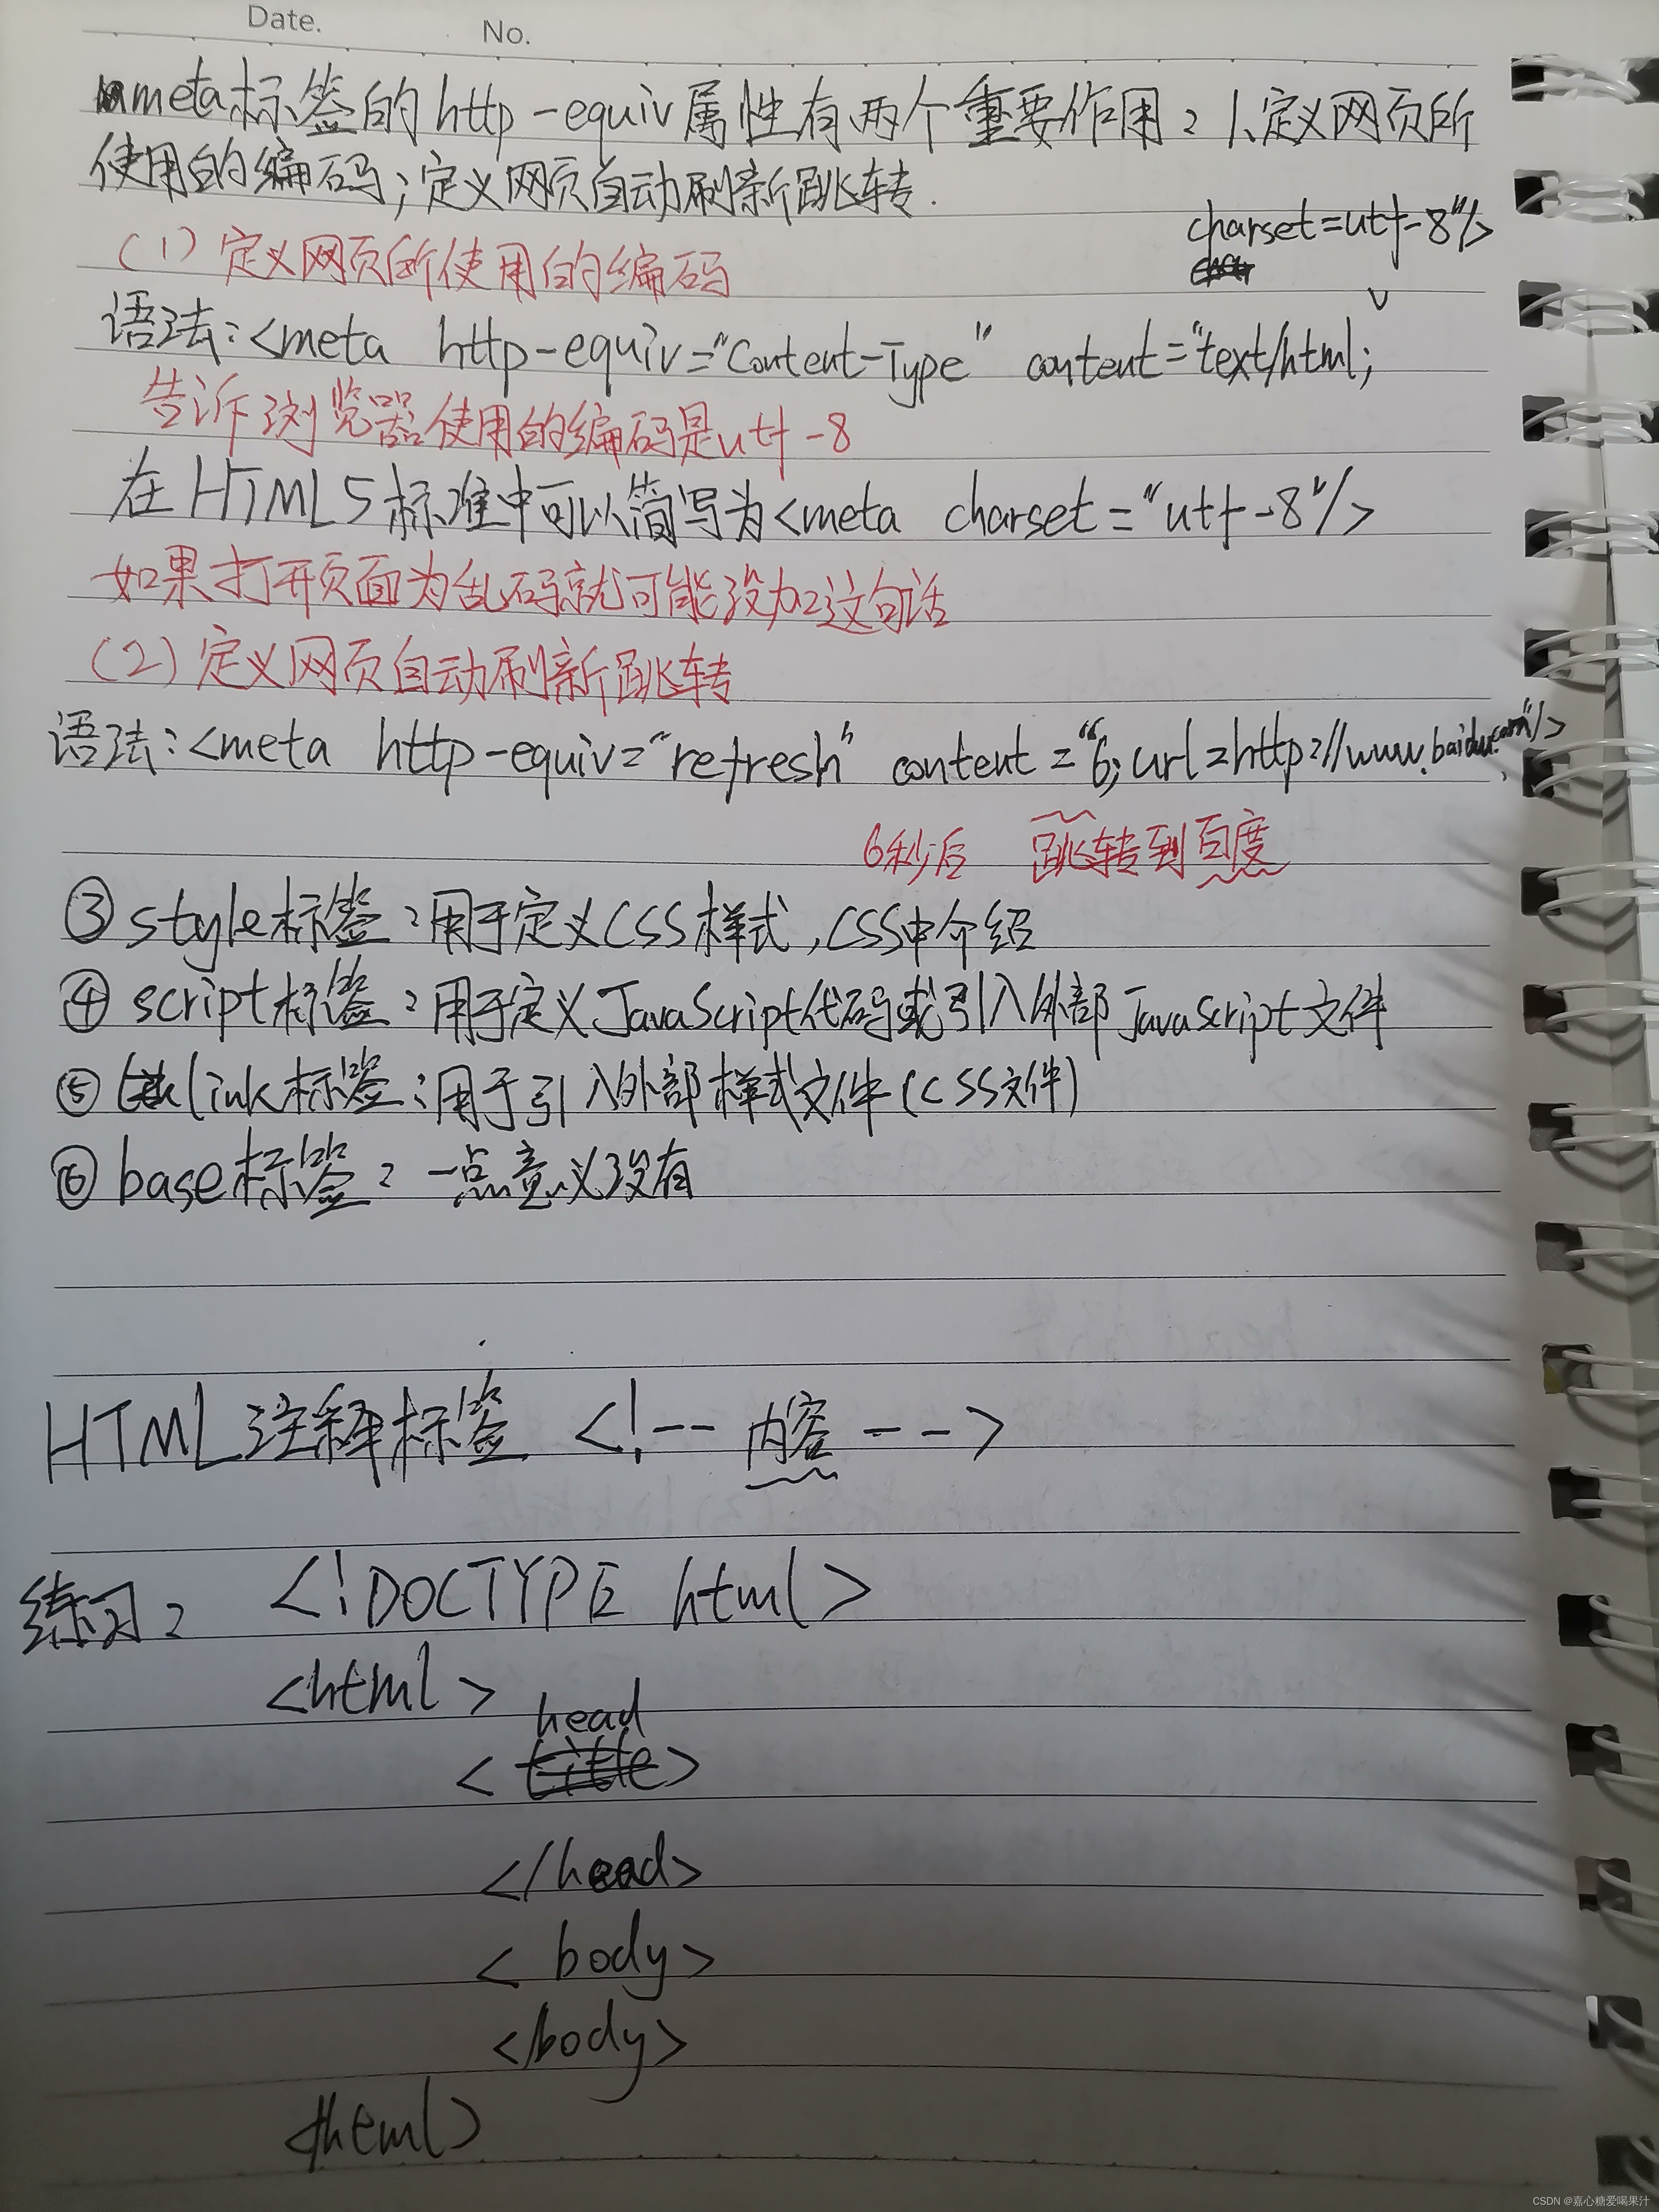 Date.
No.
meta标签的http-equiv属性有两个重要作用：1、定义网页所
使用的编码；定义网页自动刷新跳转.
(1) 定义网页所使用的编码
charset=utf-8"/>
语法：<meta http-equiv="Content-Type" content="text/html;
告诉浏览器使用的编码是utf-8
在HTML5标准中可以简写为<meta charset="utf-8"/>
如果打开页面为乱码就可能没加这句话
(2) 定义网页自动刷新跳转
语法：<meta http-equiv="refresh" content="6;url=http://www.baidu.com"/>
6秒后 跳转到百度
③ style标签：用于定义CSS样式,CSS中介绍
④ script标签：用于定义JavaScript代码或引入外部JavaScript文件
⑤ link标签：用于引入外部样式文件(CSS文件)
⑥ base标签：一点意义没有
HTML注释标签 <!-- 内容 -->
练习： <!DOCTYPE html>
<html>
head
< title>
</head>
< body>
</body>
</html>
CSDN @嘉心糖爱喝果汁